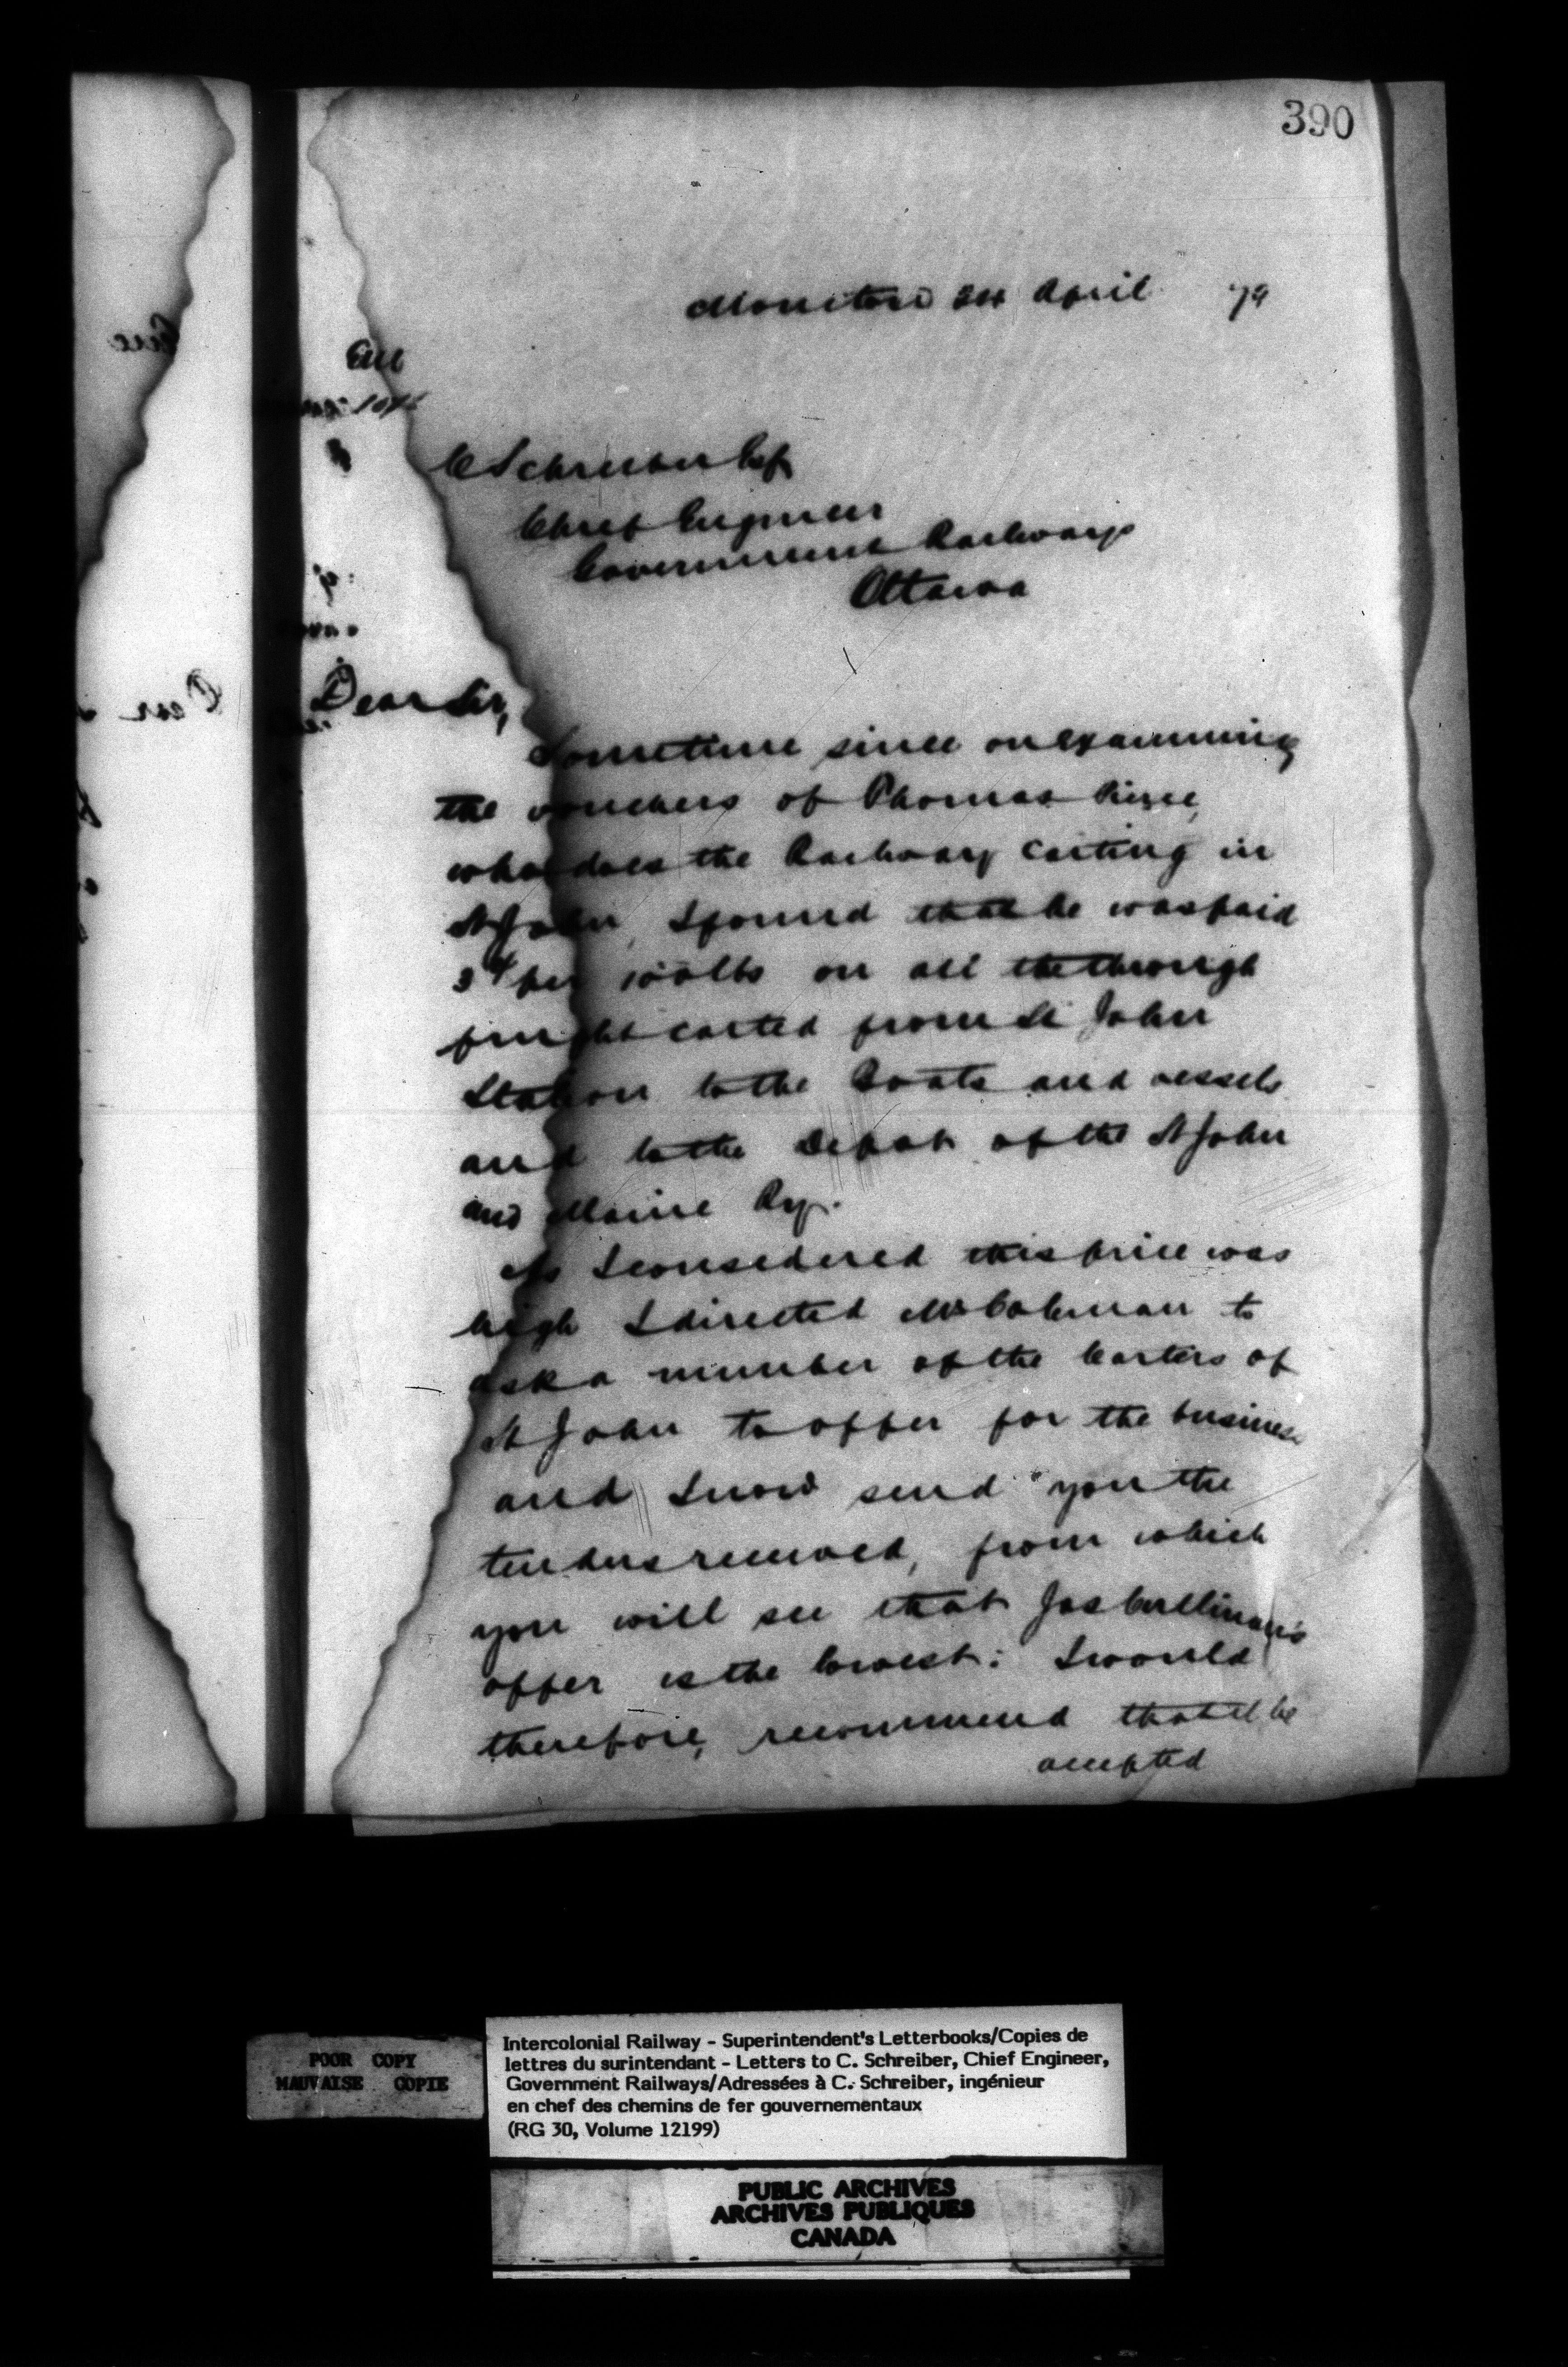 390
Moncton 24 April 79
C Schreiber Esq
Chief Engineer
Government Railways
Ottawa
Dear Sir,
Sometime since on examining
the vouchers of Thomas
who does the Railway carting in
St John, I found that he was paid
per 100 lbs on all the through
freight carted from St John
Station to the Boats and vessels
and to the Depot of the St John
and Maine Ry.
As I considered this price was
high I directed Mr Coleman to
ask a number of the Carters of
St John to offer for the business
and I now send you the
tenders received, from which
you will see that Jas Cullinan's
offer is the lowest: I would
therefore, recommend that it be
accepted
POOR COPY
MAUVAISE COPIE
Intercolonial Railway - Superintendent's Letterbooks/Copies de
lettres du surintendant - Letters to C. Schreiber, Chief Engineer,
Government Railways/Adressées à C. Schreiber, ingénieur
en chef des chemins de fer gouvernementaux
(RG 30, Volume 12199)
PUBLIC ARCHIVES
ARCHIVES PUBLIQUES
CANADA